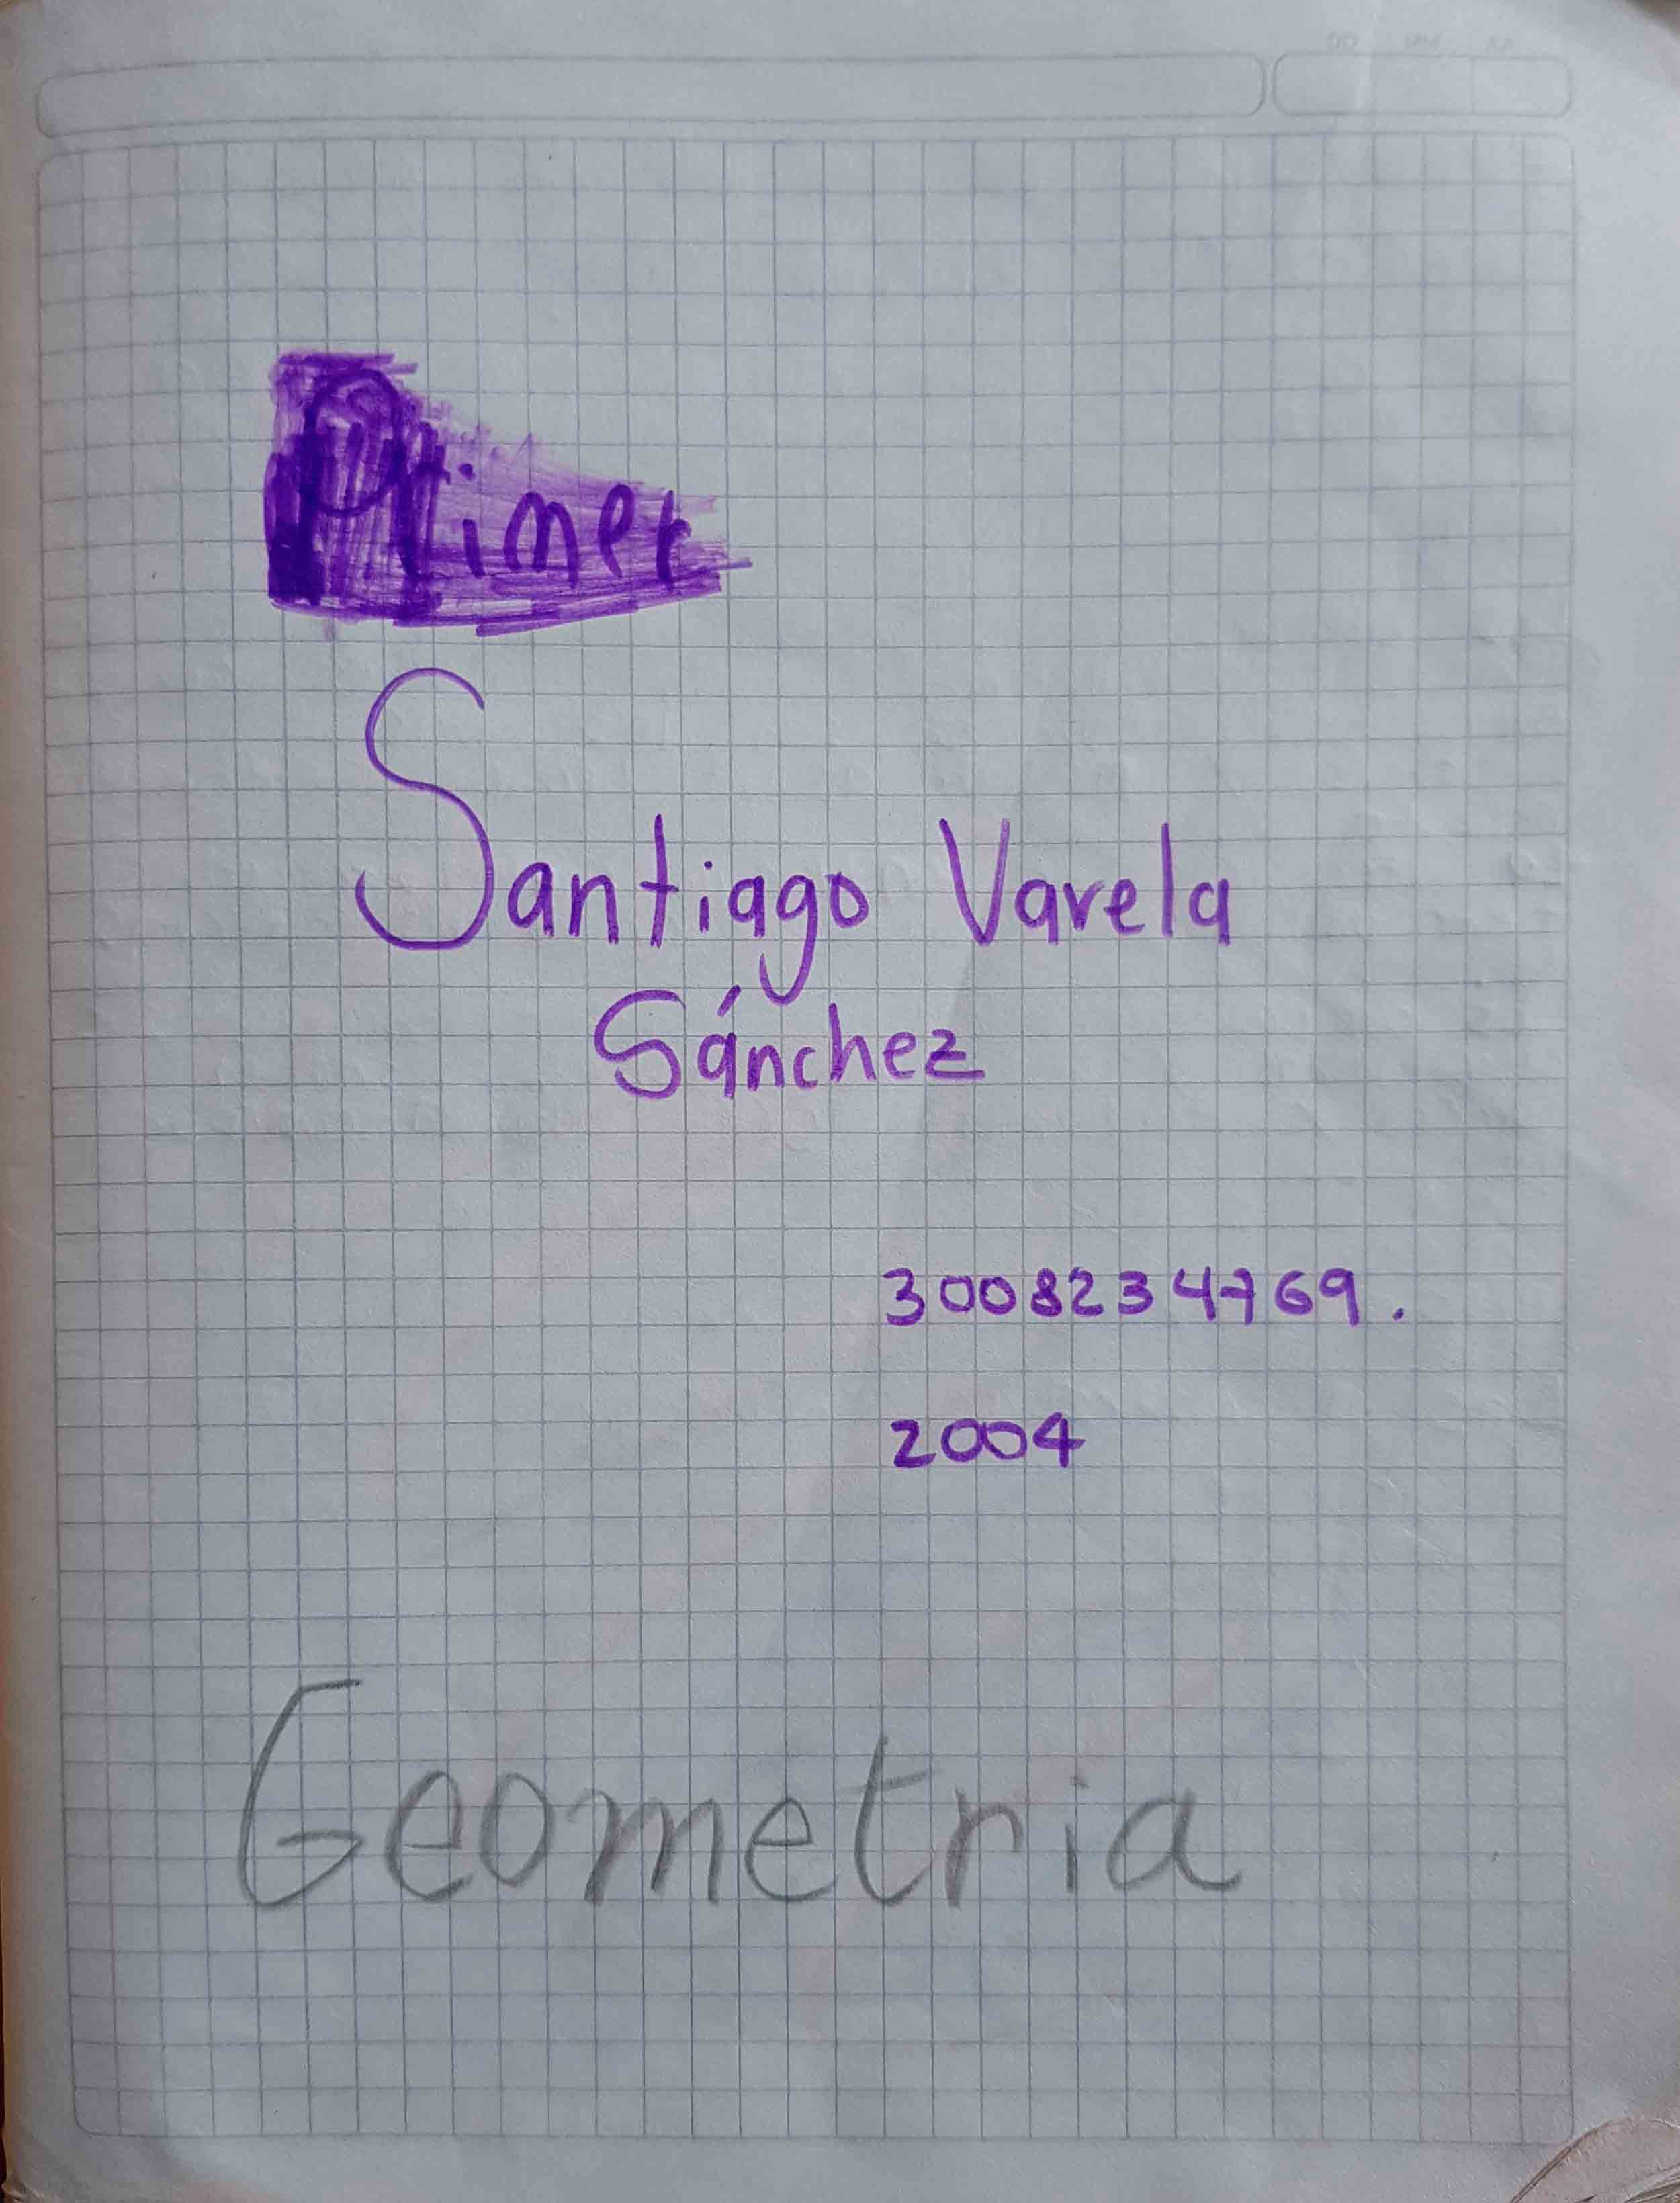 Primer
Santiago Varela
Sánchez
3008234769.
2004
Geometria